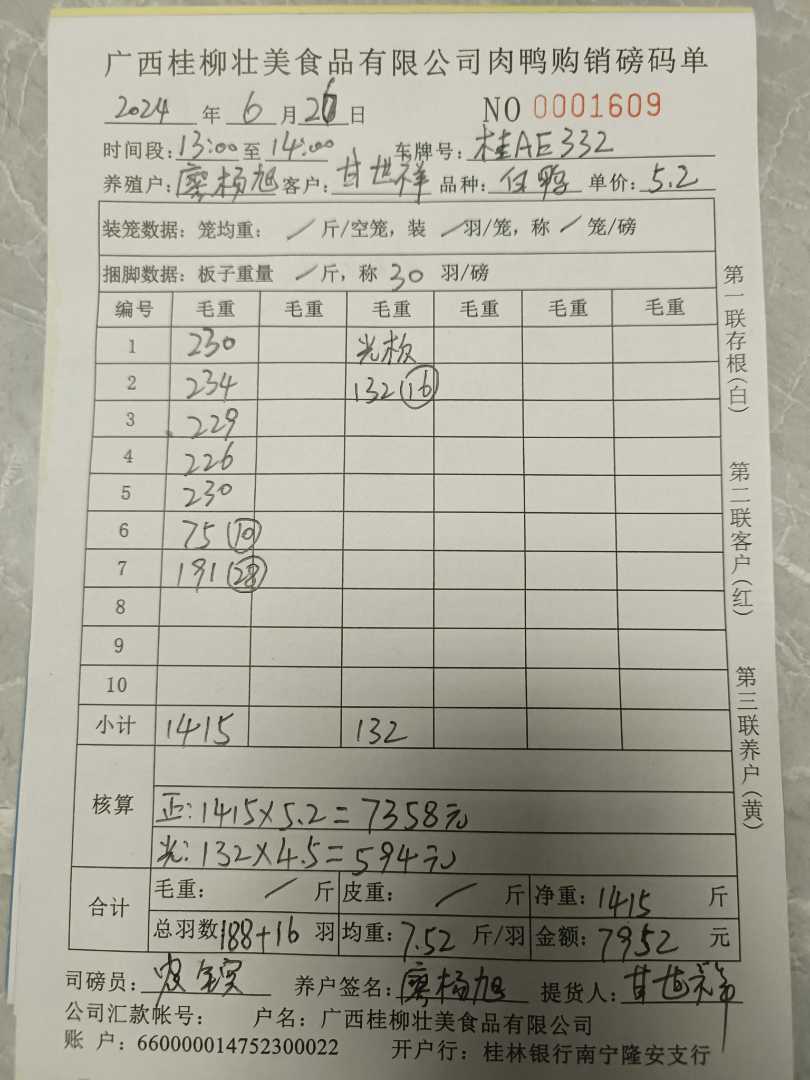 广西桂柳壮美食品有限公司肉鸭购销磅码单
2024 年 6 月 26 日 NO 0001609
时间段: 13:00 至 14:00 车牌号: 桂AE332
养殖户: 廖杨旭 客户: 甘世祥 品种: 仔鸭 单价: 5.2
装笼数据: 笼均重: / 斤/空笼, 装 / 羽/笼, 称 / 笼/磅
捆脚数据: 板子重量 / 斤, 称 30 羽/磅
编号 毛重 毛重 毛重 毛重 毛重 毛重
1 230 光板
2 234 132 (16)
3 229
4 226
5 230
6 75 (10)
7 191 (28)
8
9
10
小计 1415 132
核算
正: 1415×5.2=7358元
光: 132×4.5=594元
合计
毛重: / 斤 皮重: / 斤 净重: 1415 斤
总羽数: 188+16 羽 均重: 7.52 斤/羽 金额: 7952 元
司磅员: 养户签名: 廖杨旭 提货人: 甘世祥
公司汇款帐号: 户名: 广西桂柳壮美食品有限公司
账 户: 660000014752300022 开户行: 桂林银行南宁隆安支行
第一联存根(白) 第二联客户(红) 第三联养户(黄)